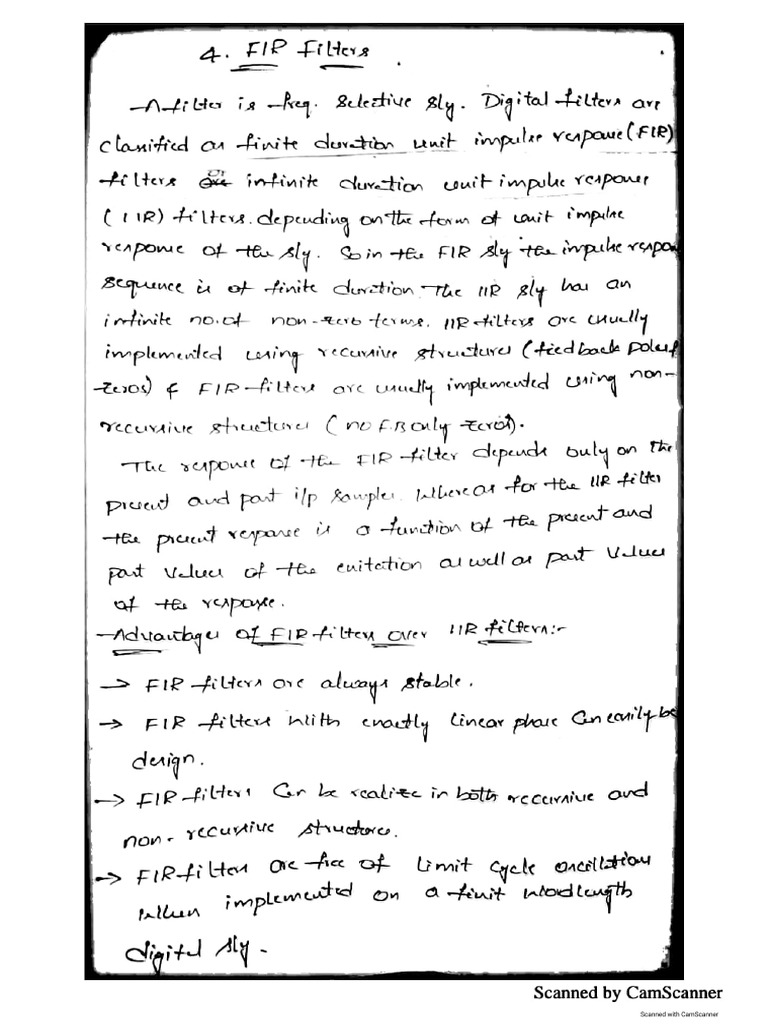 4. FIR Filters
A filter is freq. selective s/y. Digital filters are
classified as finite duration unit impulse response (FIR)
filters or infinite duration unit impulse response
(IIR) filters. depending on the form of unit impulse
response of the s/y. So in the FIR s/y the impulse respon
sequence is of finite duration. The IIR s/y has an
infinite no. of non-zero terms. IIR filters are usually
implemented using recursive structures (feedback poles &
zeros) & FIR-filters are usually implemented using non-
recursive structures (no F.B only zeros).
The response of the FIR filter depends only on the
present and past i/p samples. Where as for the IIR filter
the present response is a function of the present and
past values of the exitation as well as past values
of the response.
Advantages of FIR filters over IIR filters:-
→ FIR filters are always stable.
→ FIR filters with exactly linear phase can easily be
design.
→ FIR filters can be realize in both recursive and
non-recursive structures.
→ FIR filters are free of limit cycle oscillations
when implemented on a finit wordlength
digital s/y.
Scanned by CamScanner
Scanned with CamScanner